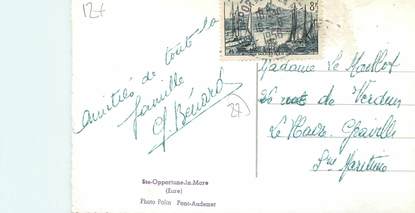 127
Amitiés de toute la
famille
G Bénard
27
Madame Le Maillot
26 rue de Verdun
Le Havre Graville
Sne Maritime
Ste-Opportune-la-Mare
(Eure)
Photo Palm Pont-Audemer